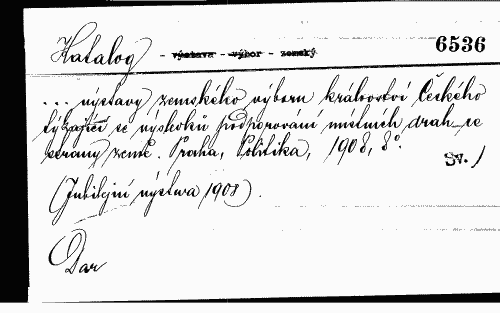 Katalog - výstava - výbor - zemský 6536
... výstavy zemského výboru království Českého
týkající se výsledků podporování místních drah se
strany země. Praha, Politika, 1908, 8°.
Sv. /
(Jubilejní výstava 1908).
Dar